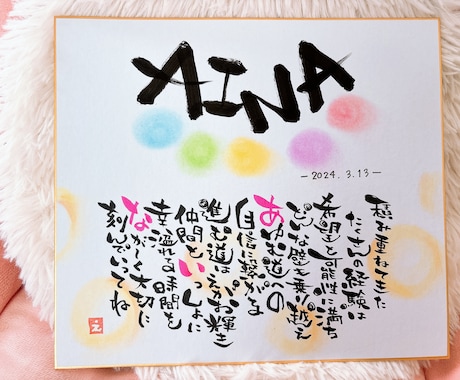 AINA
-2024.3.13-
積み重ねてきた
たくさんの経験は
希望と可能性に満ち
どんな壁も乗り越え
あゆむ道への
自信に繋がる
進む道は輝き
仲間といっしょに
幸せ溢れる時間を
ながく大切に
刻んでいってね
え